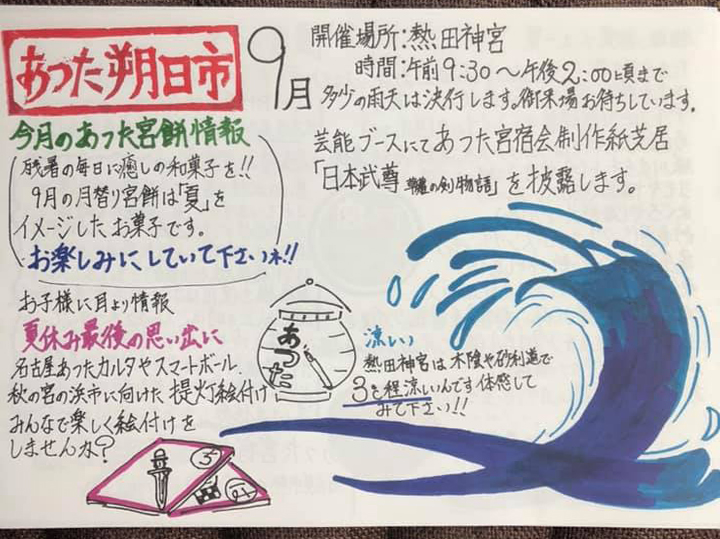 あつた朔日市
9月
開催場所:熱田神宮
時間:午前9:30~午後2:00頃まで
多少の雨天は決行します。御来場お待ちしています。
芸能ブースにてあつた宮宿会制作紙芝居
「日本武尊 草薙の剣物語」を披露します。
今月のあつた宮餅情報
残暑の毎日に癒しの和菓子を!!
9月の月替り宮餅は「夏」を
イメージしたお菓子です。
お楽しみにしていて下さいネ!!
お子様に耳より情報
夏休み最後の思い出に
名古屋あつたカルタやスマートボール、
秋の宮の浜市に向けた提灯絵付け
みんなで楽しく絵付けを
しませんか?
あつた
涼しい
熱田神宮は木陰や砂利道で
3℃程涼しいんです体感して
みて下さい!!